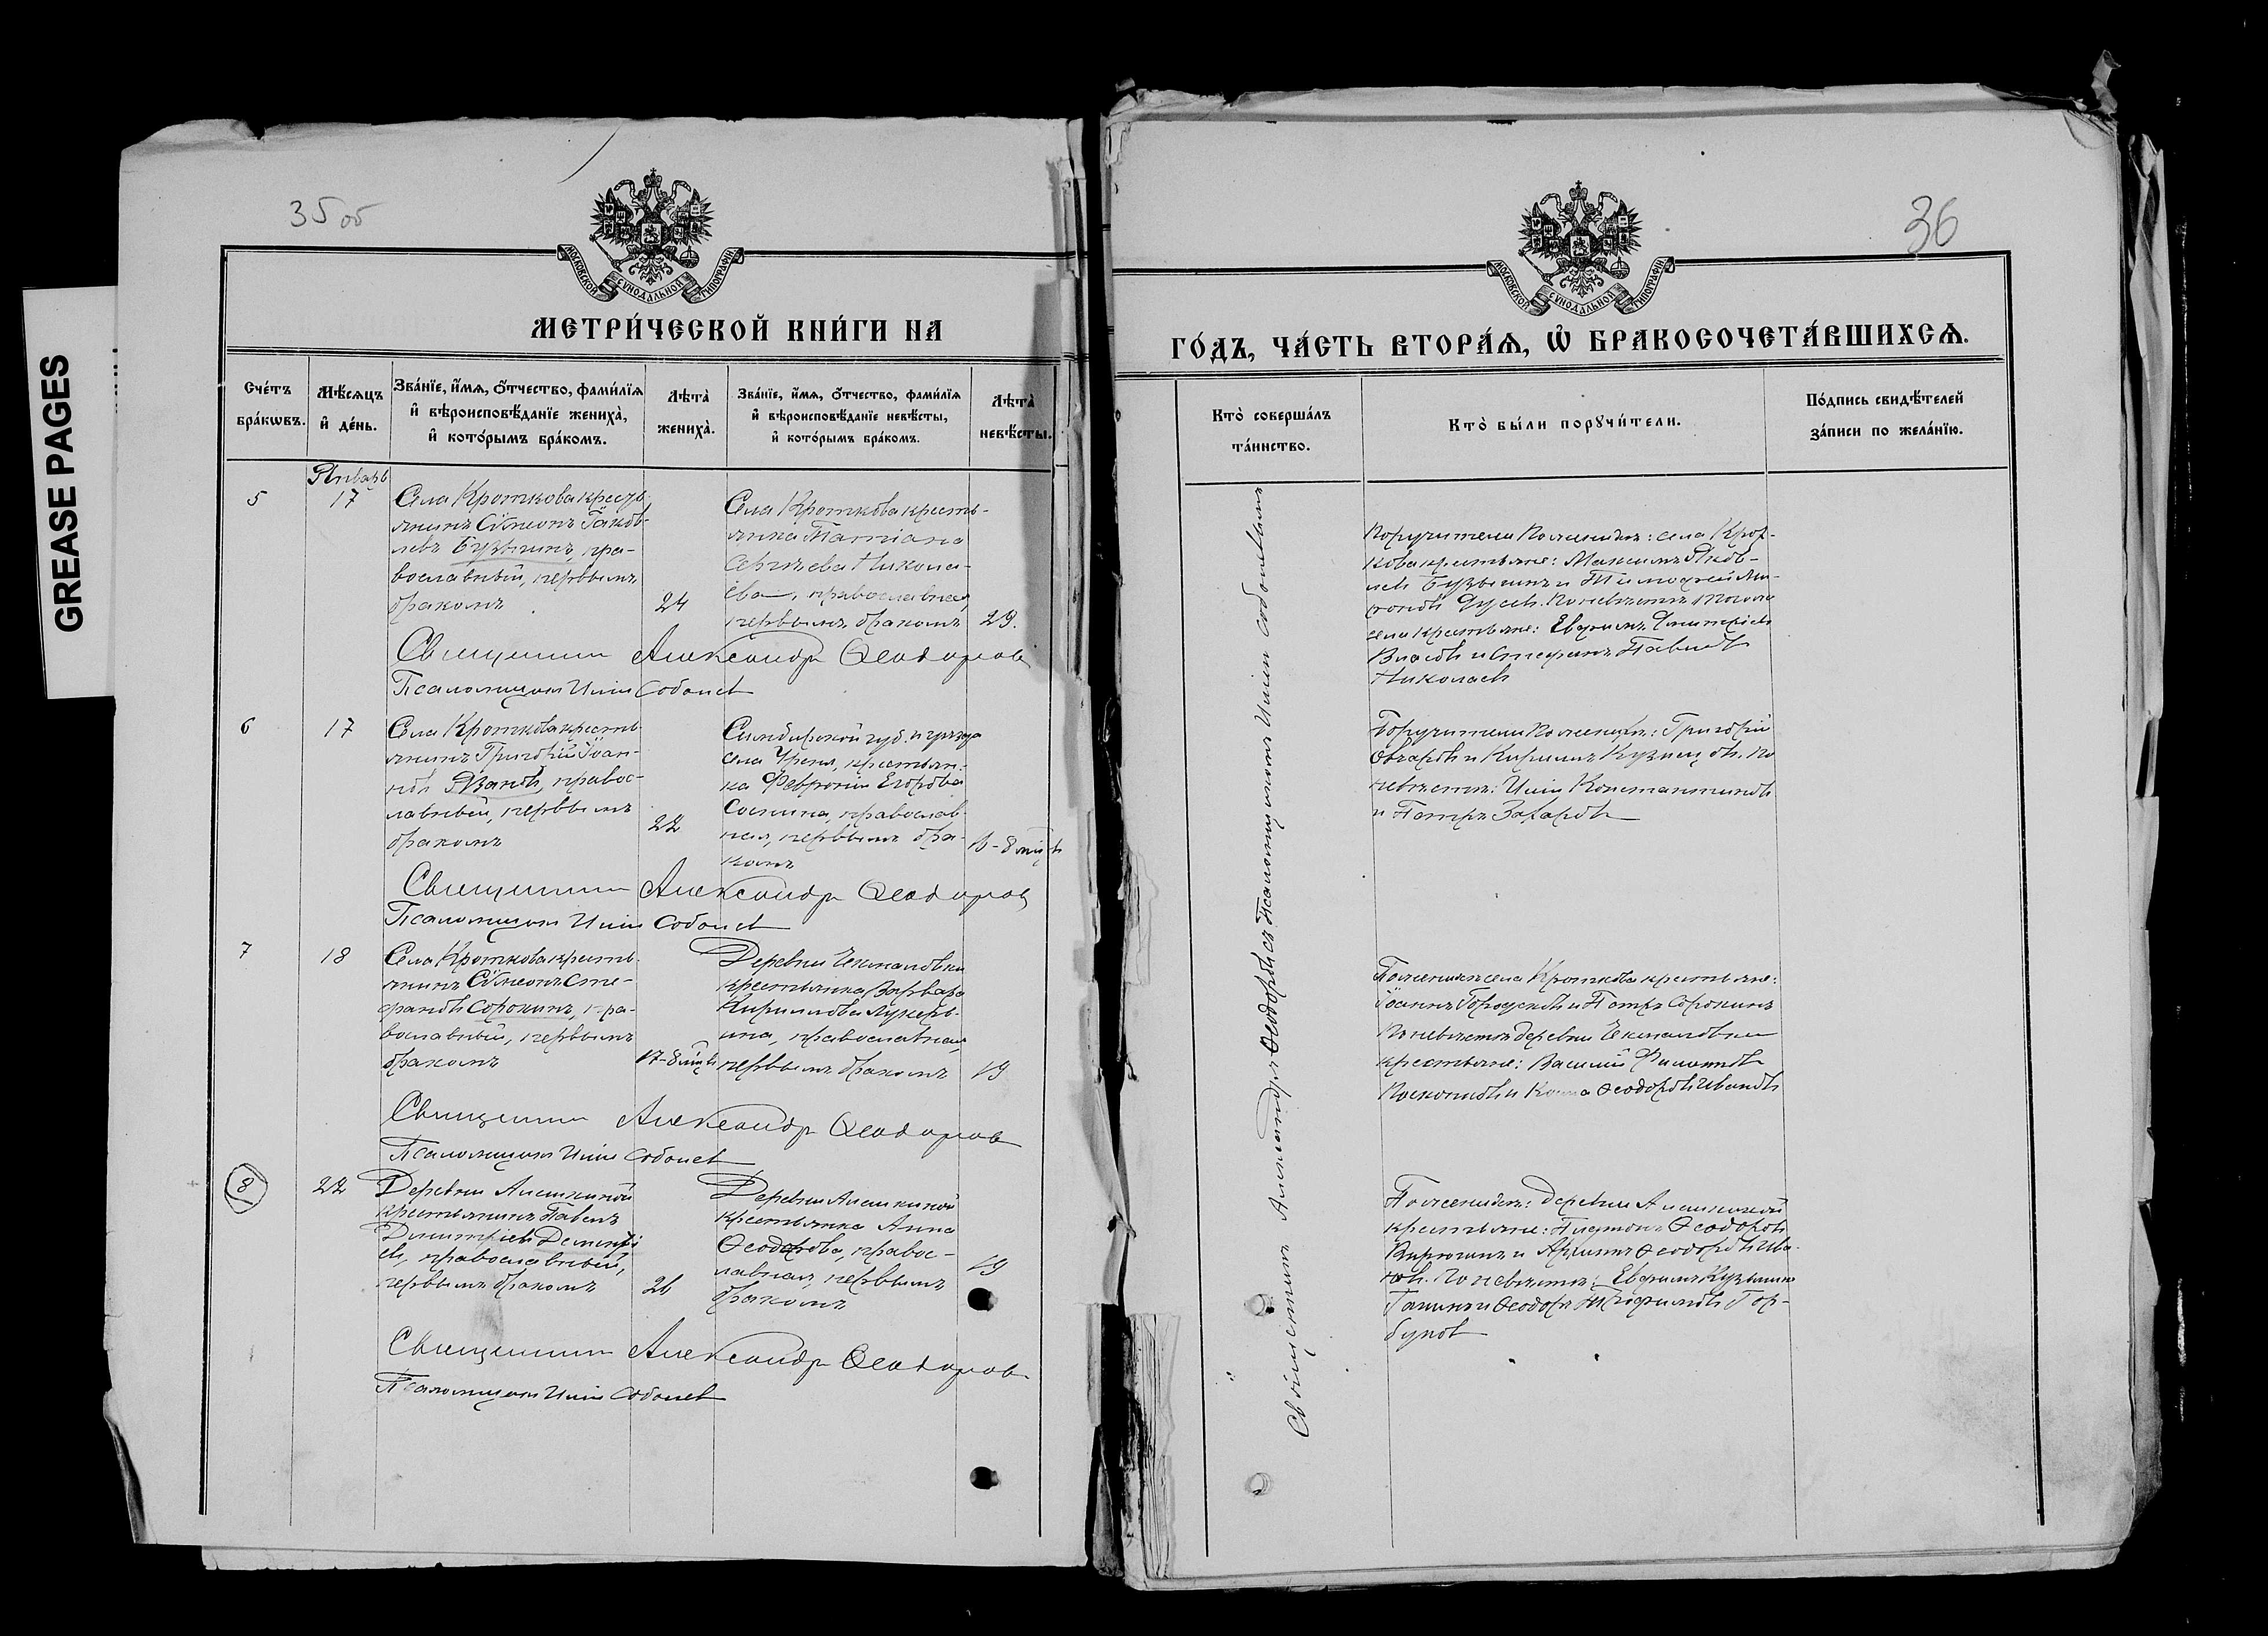 GREASE PAGES
35 об
МОСКОВСКОЙ СУНОДАЛЬНОЙ ТИПОГРАФІИ
МЕТРИ́ЧЕСКОЙ КНИ́ГИ НА
Сче́тъ бра́кѡвъ.
Мѣ́сѧцъ и҆ де́нь.
Зва́нїе, и҆́мѧ, ѻ҆́тчество, фами́лїѧ и҆ вѣроисповѣ́данїе жениха̀, и҆ кото́рымъ бра́комъ.
Лѣ́та жениха̀.
Зва́нїе, и҆́мѧ, ѻ҆́тчество, фами́лїѧ и҆ вѣроисповѣ́данїе невѣ́сты, и҆ кото́рымъ бра́комъ.
Лѣ́та невѣ́сты.
Январь
5
17
Села Кроткова кресть-
янинъ Сѵмеонъ Іаков-
левъ Бузыкинъ, пра-
вославный, первымъ
бракомъ
24
Села Кроткова кресть-
янка Татіана
Сергѣева Никола-
ева, православная,
первымъ бракомъ
29.
Священникъ Александръ Ѳеодоровъ
Псаломщикъ Соболевъ
6
17
Села Кроткова кресть-
янинъ Григорій Іоан-
новъ правос-
лавный, первымъ
бракомъ
22
Симбирской губ. и уѣзда
села крестьян-
ка Февронія Егорова
православ-
ная, первымъ бра-
комъ
Священникъ Александръ Ѳеодоровъ
Псаломщикъ Соболевъ
7
18
Села Кроткова кресть-
янинъ Сѵмеонъ Сте-
фановъ Сорокинъ, пра-
вославный, первымъ
бракомъ
17-8 мцъ
Деревни
крестьянка Варвара
Кириллова
православная,
первымъ бракомъ
19
Священникъ Александръ Ѳеодоровъ
Псаломщикъ Соболевъ
8
22
Деревни Алешкиной
крестьянинъ Павелъ
Димитріевъ Дементь
евъ, православный,
первымъ бракомъ
26
Деревни Алешкиной
крестьянка Анна
Ѳеодорова, правос-
лавная, первымъ
бракомъ
19
Священникъ Александръ Ѳеодоровъ
Псаломщикъ Соболевъ
36
МОСКОВСКОЙ СУНОДАЛЬНОЙ ТИПОГРАФІИ
ГО́ДЪ, ЧА́СТЬ ВТОРА́Ѧ, Ѡ҆ БРАКОСОЧЕТА́ВШИХСѦ.
Кто̀ соверша́лъ та́инство.
Кто̀ бы́ли порꙋчи́тели.
По́дпись свидѣ́телей за́писи по жела́нїю.
Священникъ Александръ Ѳеодоровъ съ Псаломщикомъ Соболевымъ
Поручители по женихѣ: села Крот-
кова крестьяне: Максимъ Яков-
левъ Бузыкинъ и Тимофей
Гусевъ. По невѣстѣ того же
села крестьяне: Евфимъ Димитріевъ
Власовъ и Стефанъ Павловъ
Николаевъ
Поручители по женихѣ: Григорій
Овчаровъ и Кириллъ Кузнецовъ. По
невѣстѣ: Константиновъ
и Петръ Захаровъ
По женихѣ села Кроткова крестьяне:
Іоаннъ и Петръ Сорокинъ
По невѣстѣ деревни
крестьяне: Василій Филипповъ
и Косма Ѳеодоровъ Ивановъ
По женихѣ: деревни Алешкиной
крестьяне: Платонъ Ѳеодоровъ
Кирюхинъ и Ѳеодоровъ Ива-
новъ. По невѣстѣ: Евфимъ Кузьминъ
и Ѳеодоръ Трофимовъ Гор-
буновъ